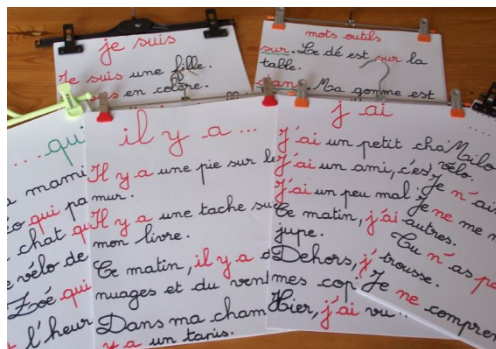 je suis
Je suis une fille.
en colère.
mots outils
sur. Le dé est sur la
table.
dans. Ma gomme est
...qui
mami
qui pa
chat qu
vélo de
Zoé qui
l'heur
il y a ...
Il y a une pie sur le
mur.
Il y a une tache su
mon livre.
Ce matin, il y a d
nuages et du vent
Dans ma cham
y a un tapis.
j'ai
J'ai un petit cha
J'ai un ami, c'es
J'ai un peu mal
Ce matin, j'ai
jupe.
Dehors, j'
mes cop
Hier, j'ai vu
Milo
vélo.
Je n'ai
Je ne me
autres.
Tu n'as pa
trousse.
Je ne compren